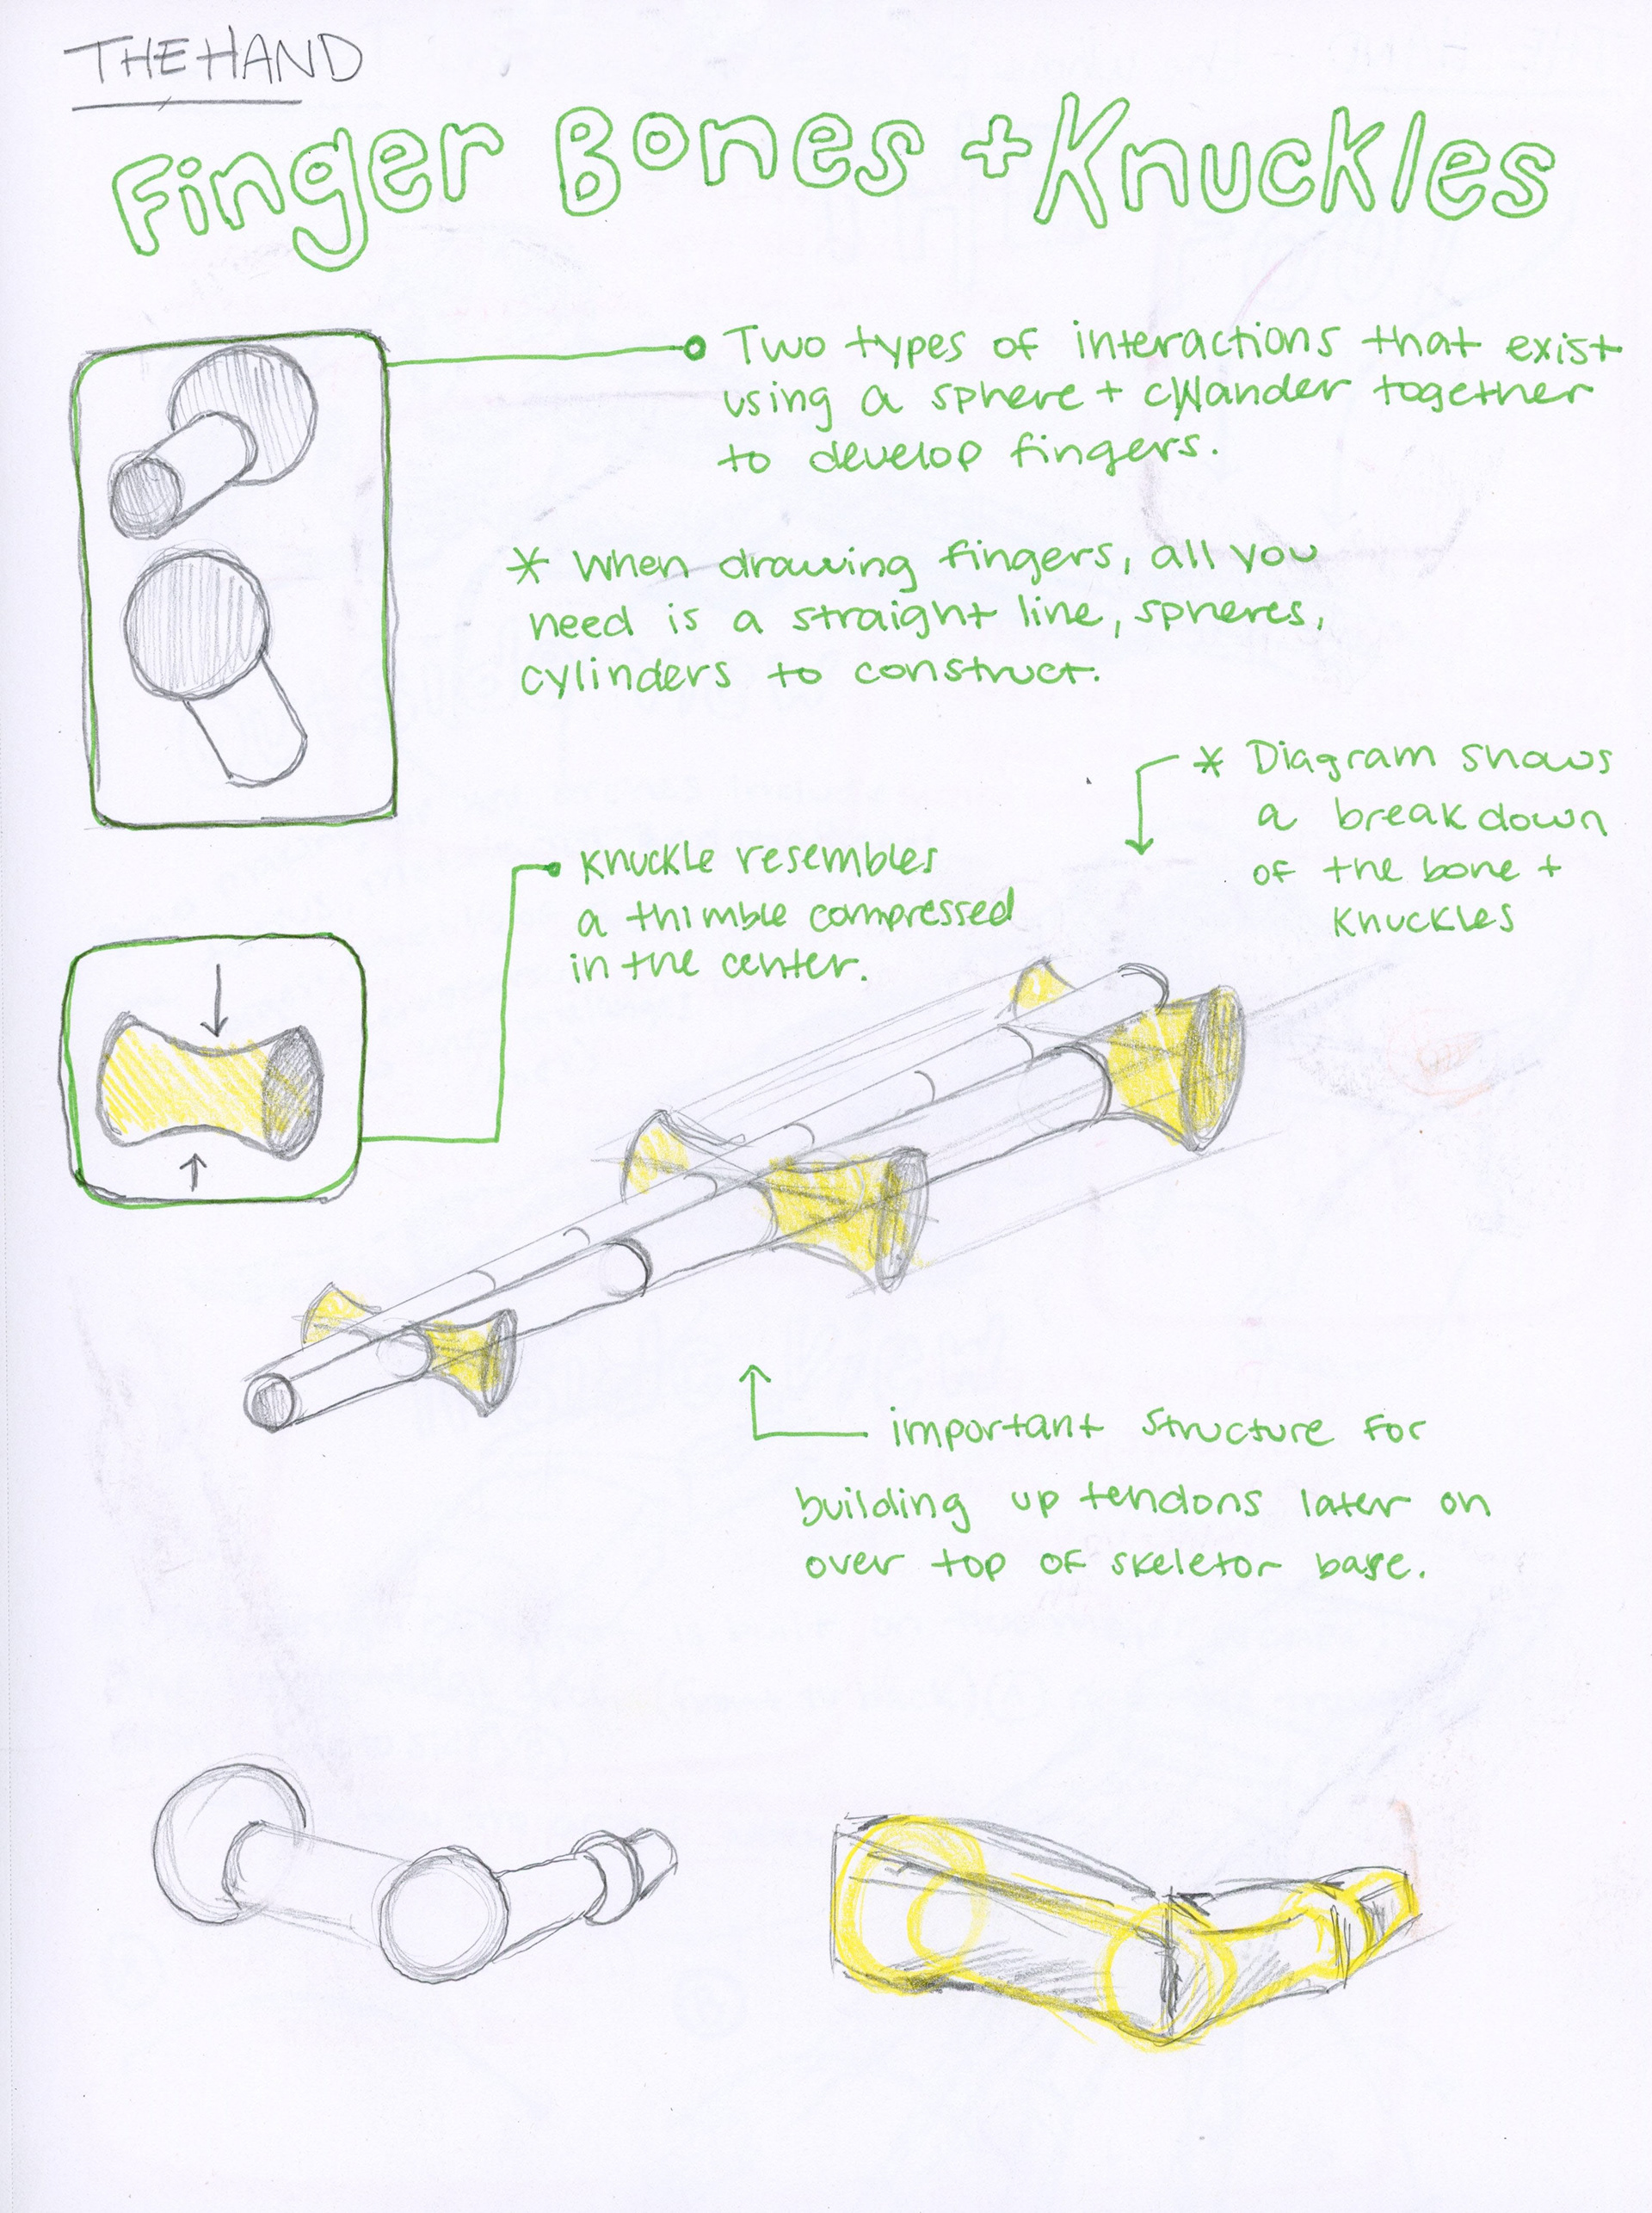 THE HAND
Finger Bones + Knuckles
Two types of interactions that exist
using a sphere + cylander together
to develop fingers.
* When drawing fingers, all you
need is a straight line, spheres,
cylinders to construct.
* Diagram shows
a breakdown
of the bone +
Knuckles
Knuckle resembles
a thimble compressed
in the center.
important structure for
building up tendons later on
over top of skeletor base.